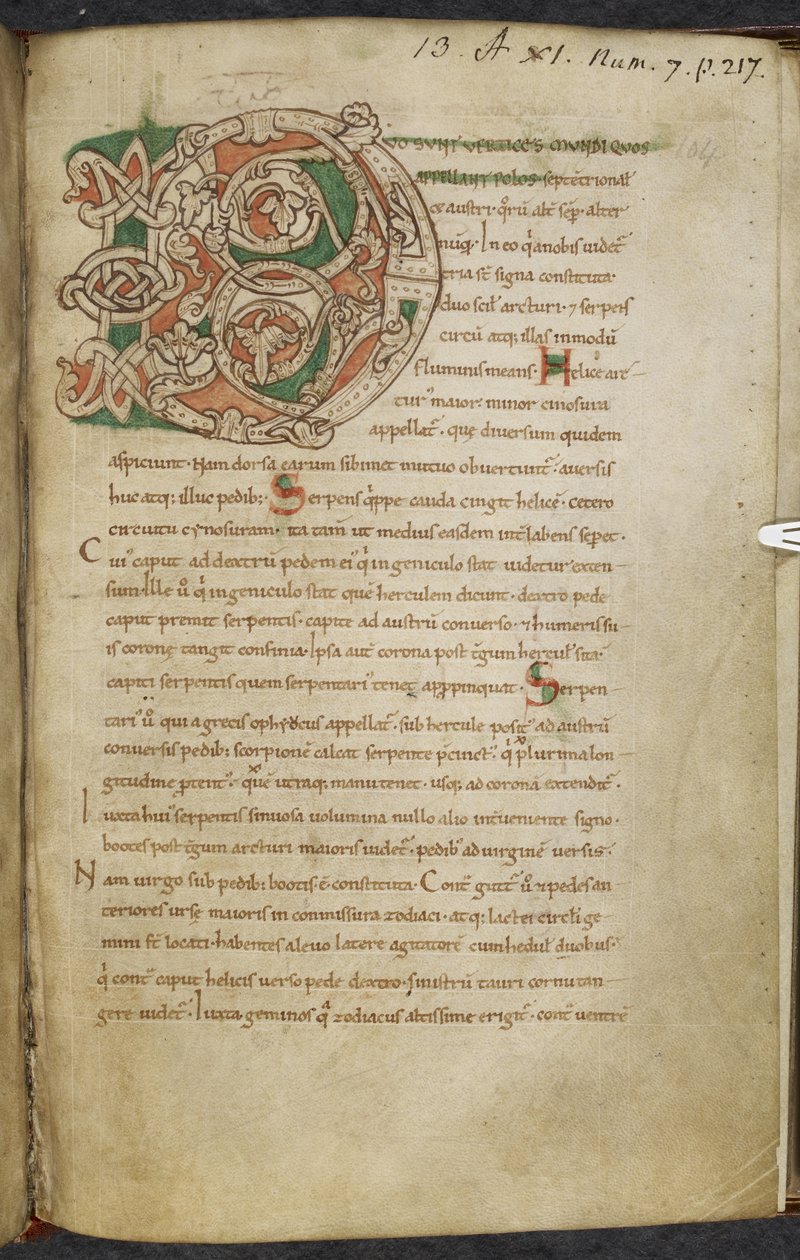 13. A XI. Num. 7. p. 217.
104
DUO SUNT VERTICES MUNDI QUOS
APPELLANT POLOS. septēt͛rional᷒
& austri. q̄rū alt͛ sēp. alter
nūq. In eo q̇ a nobis uidet͛
tria st̄ signa constituta.
duo scil᷒ arcturi. ⁊ serpens
circū atq; illas in modū
fluminis means. Helice arc
tur᷒ maior. minor cinosura
appellat͛. quę diuersum quidem
aspiciunt. Nam dorsa earum sibimet mutuo obuertunt͛. auersis
huc atq; illuc pedib;. Serpens q̇ppe cauda cingit helicē. cetero
circuitu cynosuram. ita tam̄ ut medius easdem int͛labens sepet.
Cui᷒ caput ad dextrū pedem ei᷒ q̇ ingeniculo stat uidetur exten
sum. Ille u̇ q̇ ingeniculo stat quē herculem dicunt. dextro pede
caput premit serpentis. capite ad austrū conuerso. ⁊ humeris su
is coronę tangit confinia. Ipsa aut̄ corona post t͛gum hercul᷒ sita.
capiti serpentis quem serpentari᷒ tenet appropinquat. Serpen
tari᷒ u̇ qui a grecis ophyucus appellat͛. sub hercule posit᷒ ad austrū
conuersis pedib; scorpionē calcat serpente p̄cinct᷒. q̇ plurima lon
gitudine ꝓtent᷒. quē utraq; manu tenet. usq; ad coronā extendit͛.
Iuxta hui᷒ serpentis sinuosa uolumina nullo alio int͛ueniente signo.
bootes post t͛gum arcturi maioris uidet͛. pedib᷒ ad uirginē uersis.
Nam uirgo sub pedib; bootis ē constituta. Cont͛ gutt͛ u̇ & pedes an
teriores ursę maioris in commissura zodiaci. atq; lactei circl̄i ge
mini st̄ locati. habentes a leuo latere agitatorē cum hedul᷒ duobus.
q̇ cont͛ caput helicis uerso pede dextro. sinistrū tauri cornu tan
gere uidet͛. Iuxta geminos q̄ zodiacus altissime erigit͛. cont͛ uentrē